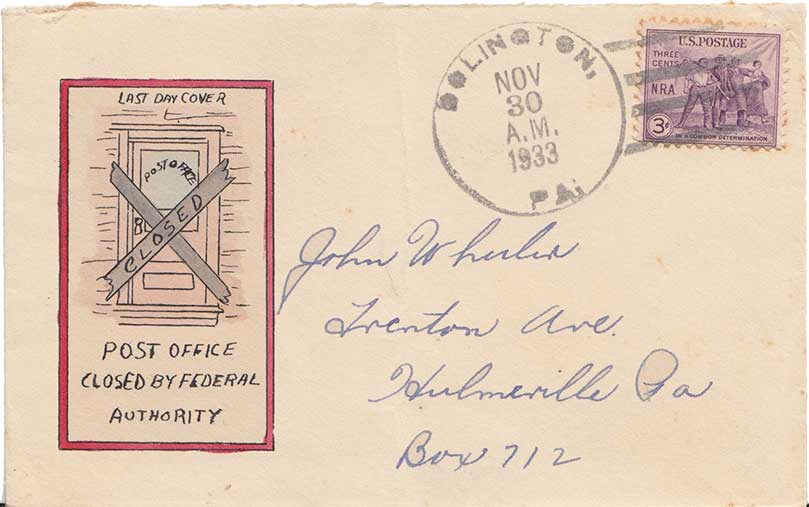 LAST DAY COVER
POST OFFICE
CLOSED
POST OFFICE
CLOSED BY FEDERAL
AUTHORITY
DOLINGTON,
NOV
30
A.M.
1933
PA.
U.S. POSTAGE
THREE
CENTS
N.R.A.
3¢
IN A COMMON DETERMINATION
John Wheeler
Trenton Ave.
Hulmeville Pa
Box 712